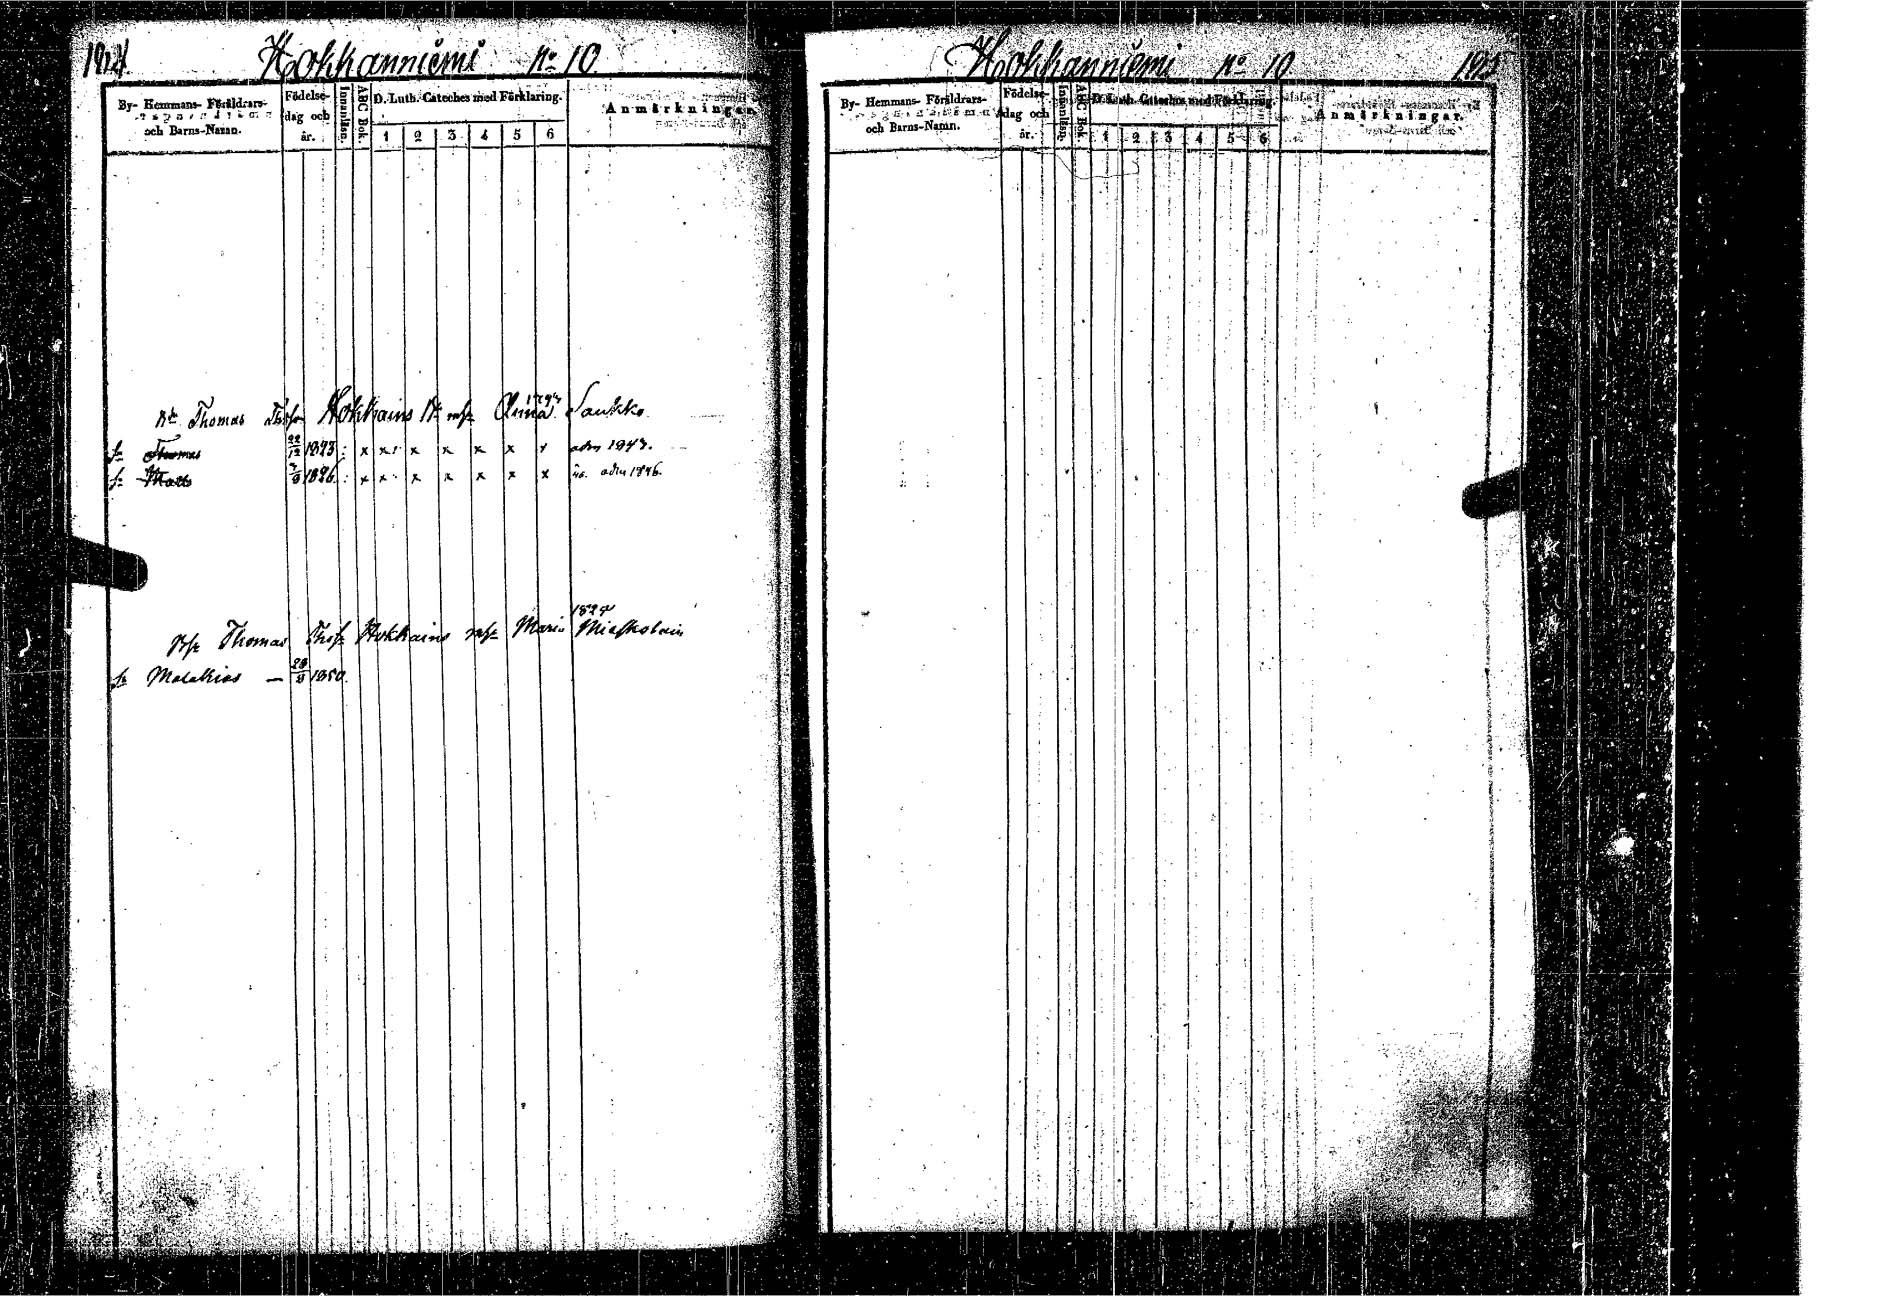 Hokkanniemi No 10
By- Hemmans- Föräldrars- och Barns-Namn.
Födelse- dag och år.
Innanläsn.
ABC Bok.
D. Luth. Cateches med Förklaring.
1 2 3 4 5 6
Anmärkningar.
Thomas Hokkains Anna Saukko
Thomas 22/12 1823 x x x x x x adm 1843.
Matts 1826 x x x x x x x adm 1846.
1828
Thomas Hokkains Maria
Malakias — 1850.
Hokkanniemi No 10
By- Hemmans- Föräldrars- och Barns-Namn.
Födelse- dag och år.
Innanläsn.
ABC Bok.
D. Luth. Cateches med Förklaring.
1 2 3 4 5 6
Anmärkningar.